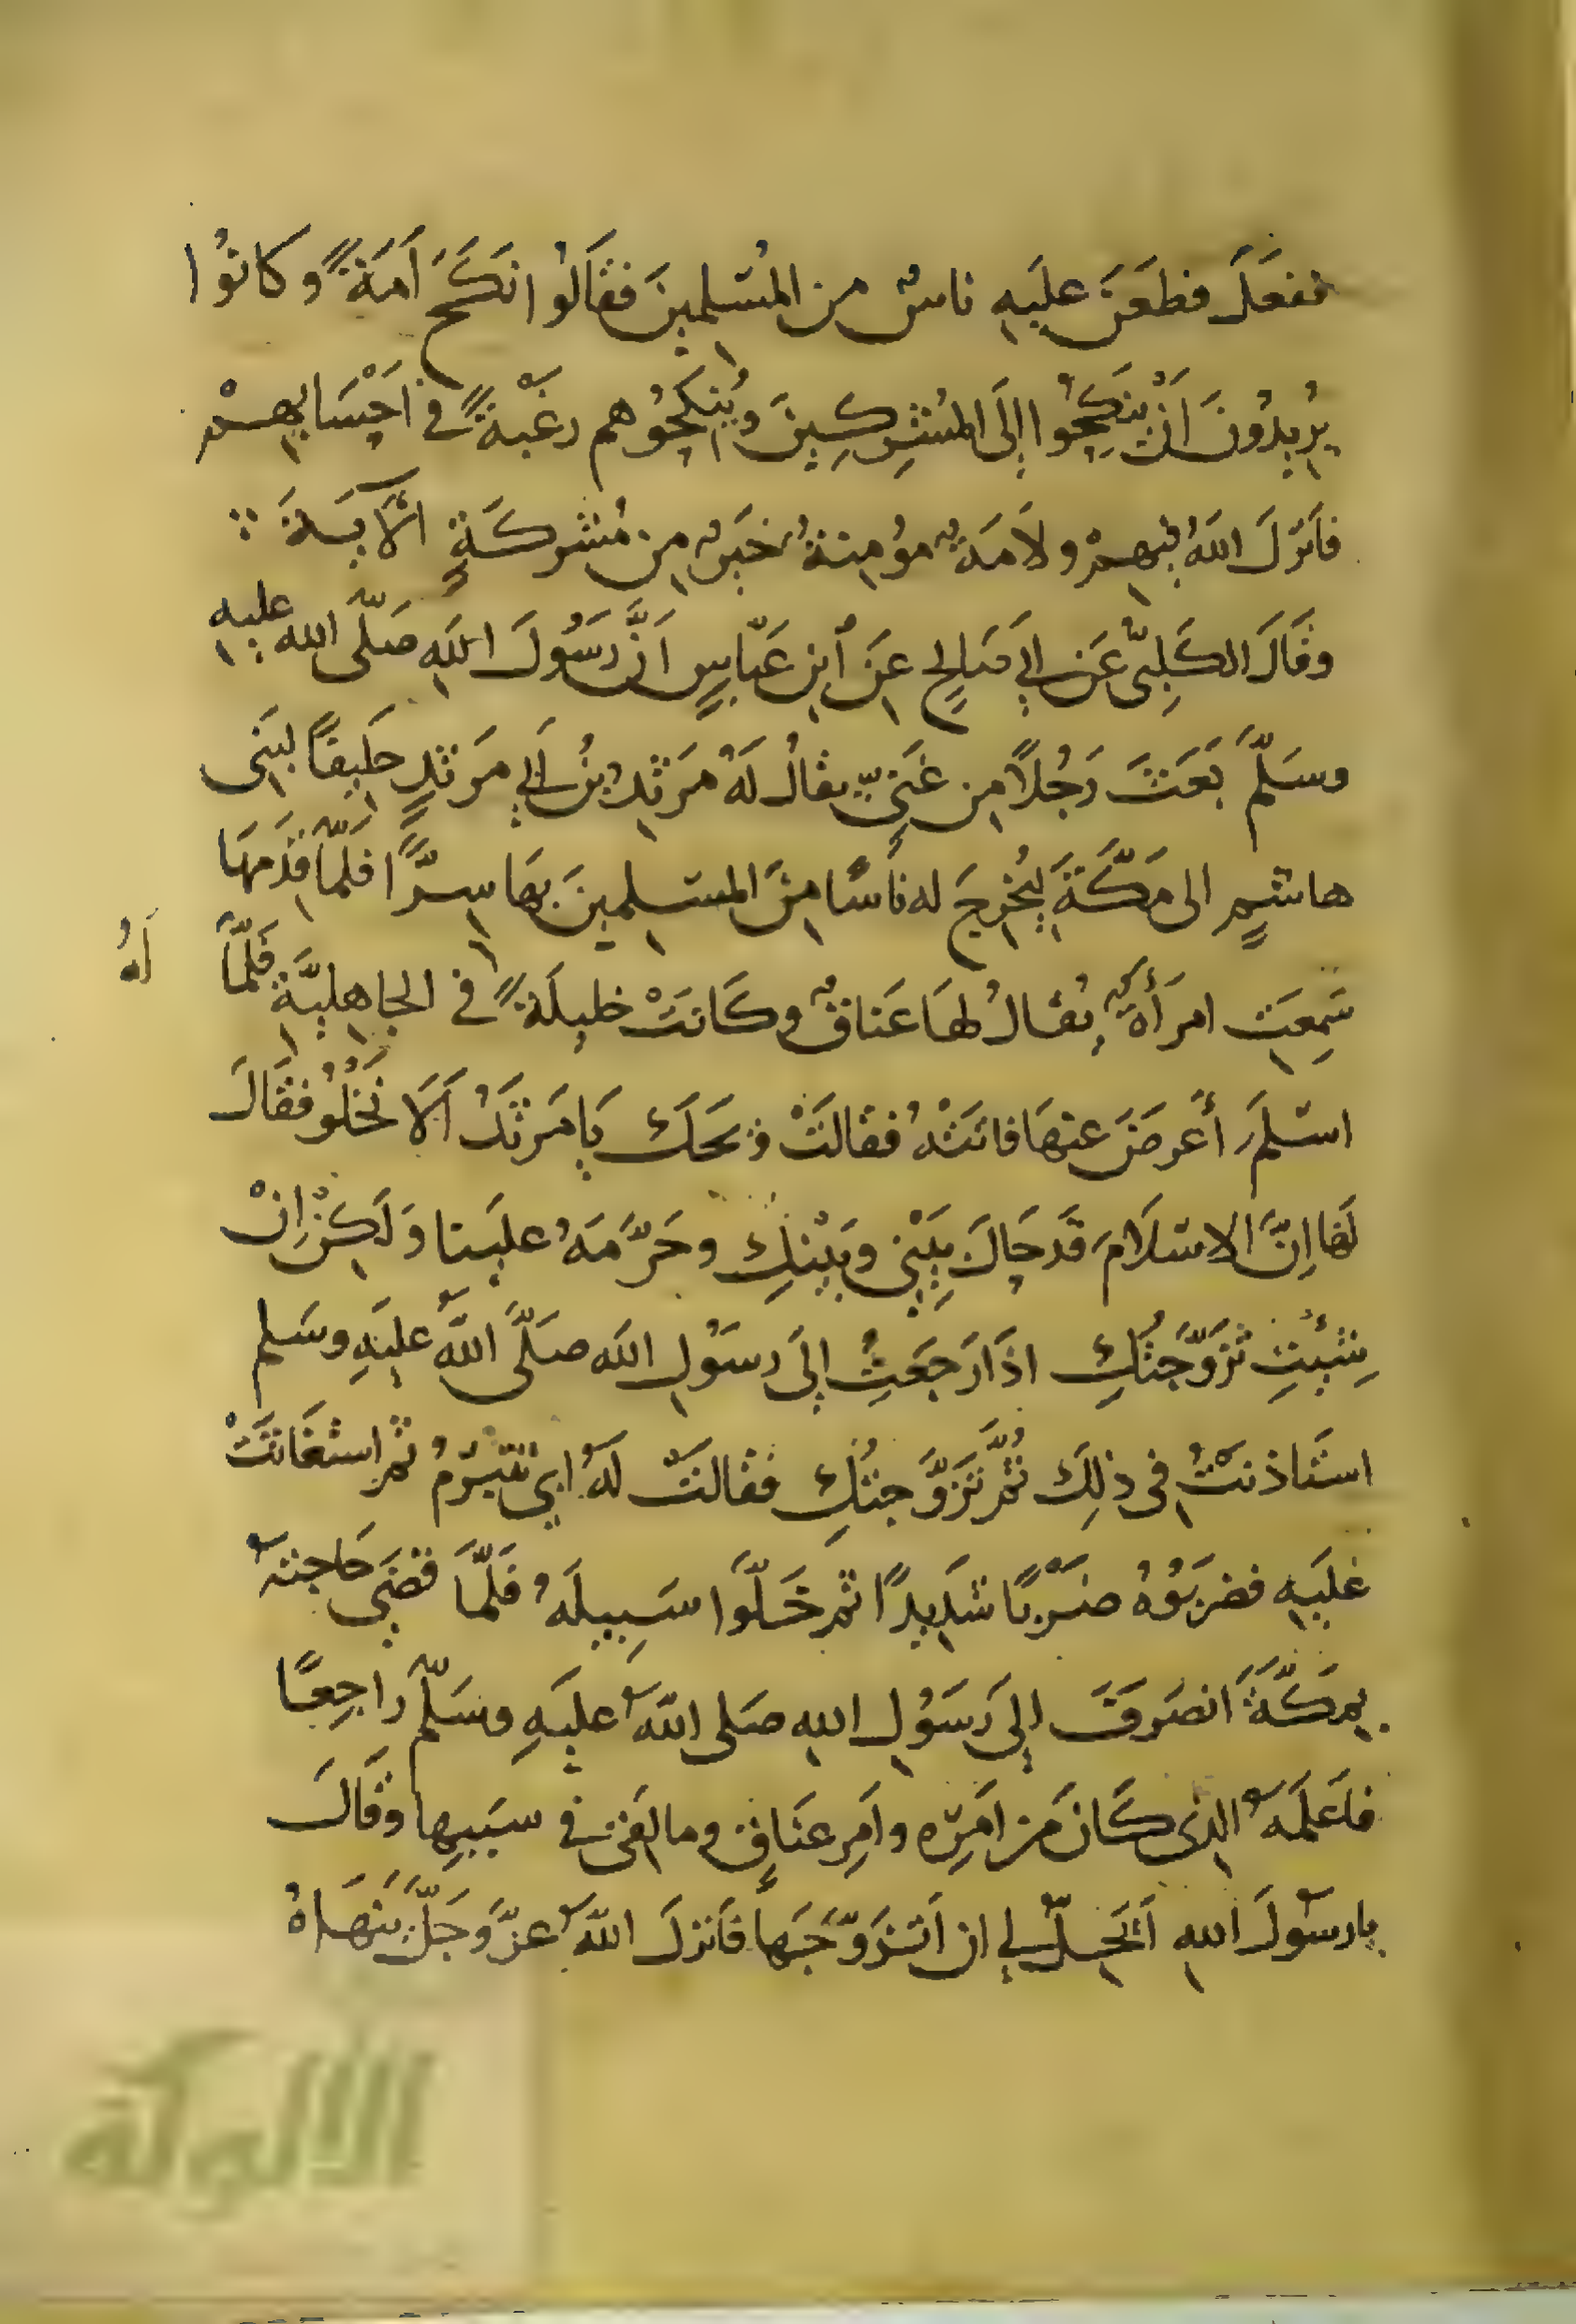 ففعَلَ فطعَنَ عليَهِ ناسٌ من المُسْلمينَ فقَالُوا انكَحَ أَمَةً وكانُوا
يُرِيدُونَ اَنْ يَنكِحُوا اِلَى المُشرِكِينَ ويُنكِحُوهم رغْبةً في اَحْسَابِهِمْ
فاَنزلَ اللهُ فيهمْ ولاَمَةٌ مؤمِنةٌ خيَرٌ مِن مُشركَةٍ الآيَةَ
وقَالَ الكَلِبىُّ عَن اَبي صَالحٍ عَن اُبنِ عَبّاسٍ اَنَّ رَسُولَ اللهِ صَلّى الله عليهِ
وسَلّمَ بَعَثَ رَجُلاً مِن غَنىٍّ يقالُ لَهُ مَرثَدُ بنُ اَبي مَرثدٍ حَليفًا لبنَى
هاشمٍ الى مَكّةَ ليُخرِجَ له ناسًا مِنَ المسلمينَ بهَا سِرًّا فلمّا قدَمهَا
سَمِعَت امرَأَةٌ يُقالُ لهَا عَناقٌ وكَانتْ خليلَةً في الجاهِليَّةِ فَلمَّا
لَهُ
اسْلَمَ أَعرضَ عنهَا فاتَتْهُ فقالَتْ وَيحَكَ يَا مَرثَدُ اَلَا نَخْلُوُ فقَالَ
لهَا اِنَّ الاسْلَامَ قَد حَالَ بَيْنِي وبَيْنكِ وحَرَّمَهُ علَينا ولَكِنْ اِنْ
شِئتِ تَزَوَّجتُكِ اذَا رَجَعتُ اِلَى رسَوُلِ الله صَلَّى اللهُ عليَهِ وسَلم
استَاذنتُ في ذلِكَ ثُمَّ تزَوَّجتُكِ فقالَتْ لَهُ ابي تَتَبرّمُ ثم استَغَاثَتْ
عليَهِ فضربَوُهُ ضَرْبًا شَديدًا ثم خَلَّوا سَبِيلَهُ فلَمَّا قضَى حَاجتهُ
بِمَكّةَ انصَرفَ اِلىَ رسَوُلِ اللهِ صَلى اللهُ عليَهِ وسَلّم رَاجِعًا
فاَعلَمَهُ الذى كَانَ مَن امَرِه واَمرِ عنَاقٍ وما لقىَ في سبَبِها وقَالَ
يا رسُولَ اللهِ اَتَحِلُّ لي ان اَتَزَوّجَهَا فاَنزلَ اللهُ عزّ وَجَلَّ يَنهَاهُ